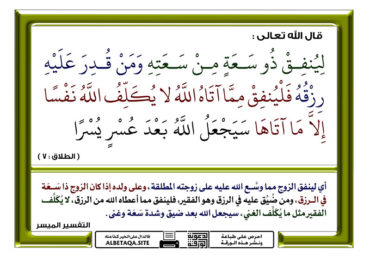 قال الله تعالى :
لِيُنفِقْ ذُو سَعَةٍ مِنْ سَعَتِهِ وَمَنْ قُدِرَ عَلَيْهِ
رِزْقُهُ فَلْيُنفِقْ مِمَّا آتَاهُ اللَّهُ لَا يُكَلِّفُ اللَّهُ نَفْسًا
إِلَّا مَا آتَاهَا سَيَجْعَلُ اللَّهُ بَعْدَ عُسْرٍ يُسْرًا
( الطلاق : ٧ )
أي لينفق الزوج مما وسَّع الله عليه على زوجته المطلقة، وعلى ولده إذا كان الزوج ذا سَعَة
في الرزق، ومن ضُيِّق عليه في الرزق وهو الفقير، فلينفق مما أعطاه الله من الرزق، لا يُكَلَّف
الفقير مثل ما يُكَلَّف الغني، سيجعل الله بعد ضيق وشدة سَعَة وغنى.
التفسير الميسر
احرص على طباعة
ونشر هذه الورقة
فالدال على الخير كفاعله
ALBETAQA.SITE